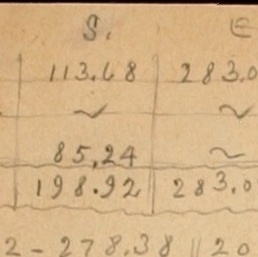 S. E
113.68 283.0
~ ~
85.24 ~
198.92 283.0
2 - 278.38 || 20